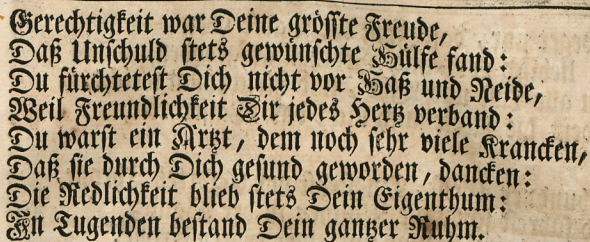 Gerechtigkeit war Deine grösste Freude,
Daß Unschuld stets gewünschte Hülfe fand:
Du fürchtetest Dich nicht vor Haß und Neide,
Weil Freundlichkeit Dir jedes Hertz verband:
Du warst ein Artzt, dem noch sehr viele Krancken,
Daß sie durch Dich gesund geworden, dancken:
Die Redlichkeit blieb stets Dein Eigenthum:
In Tugenden bestand Dein gantzer Ruhm.